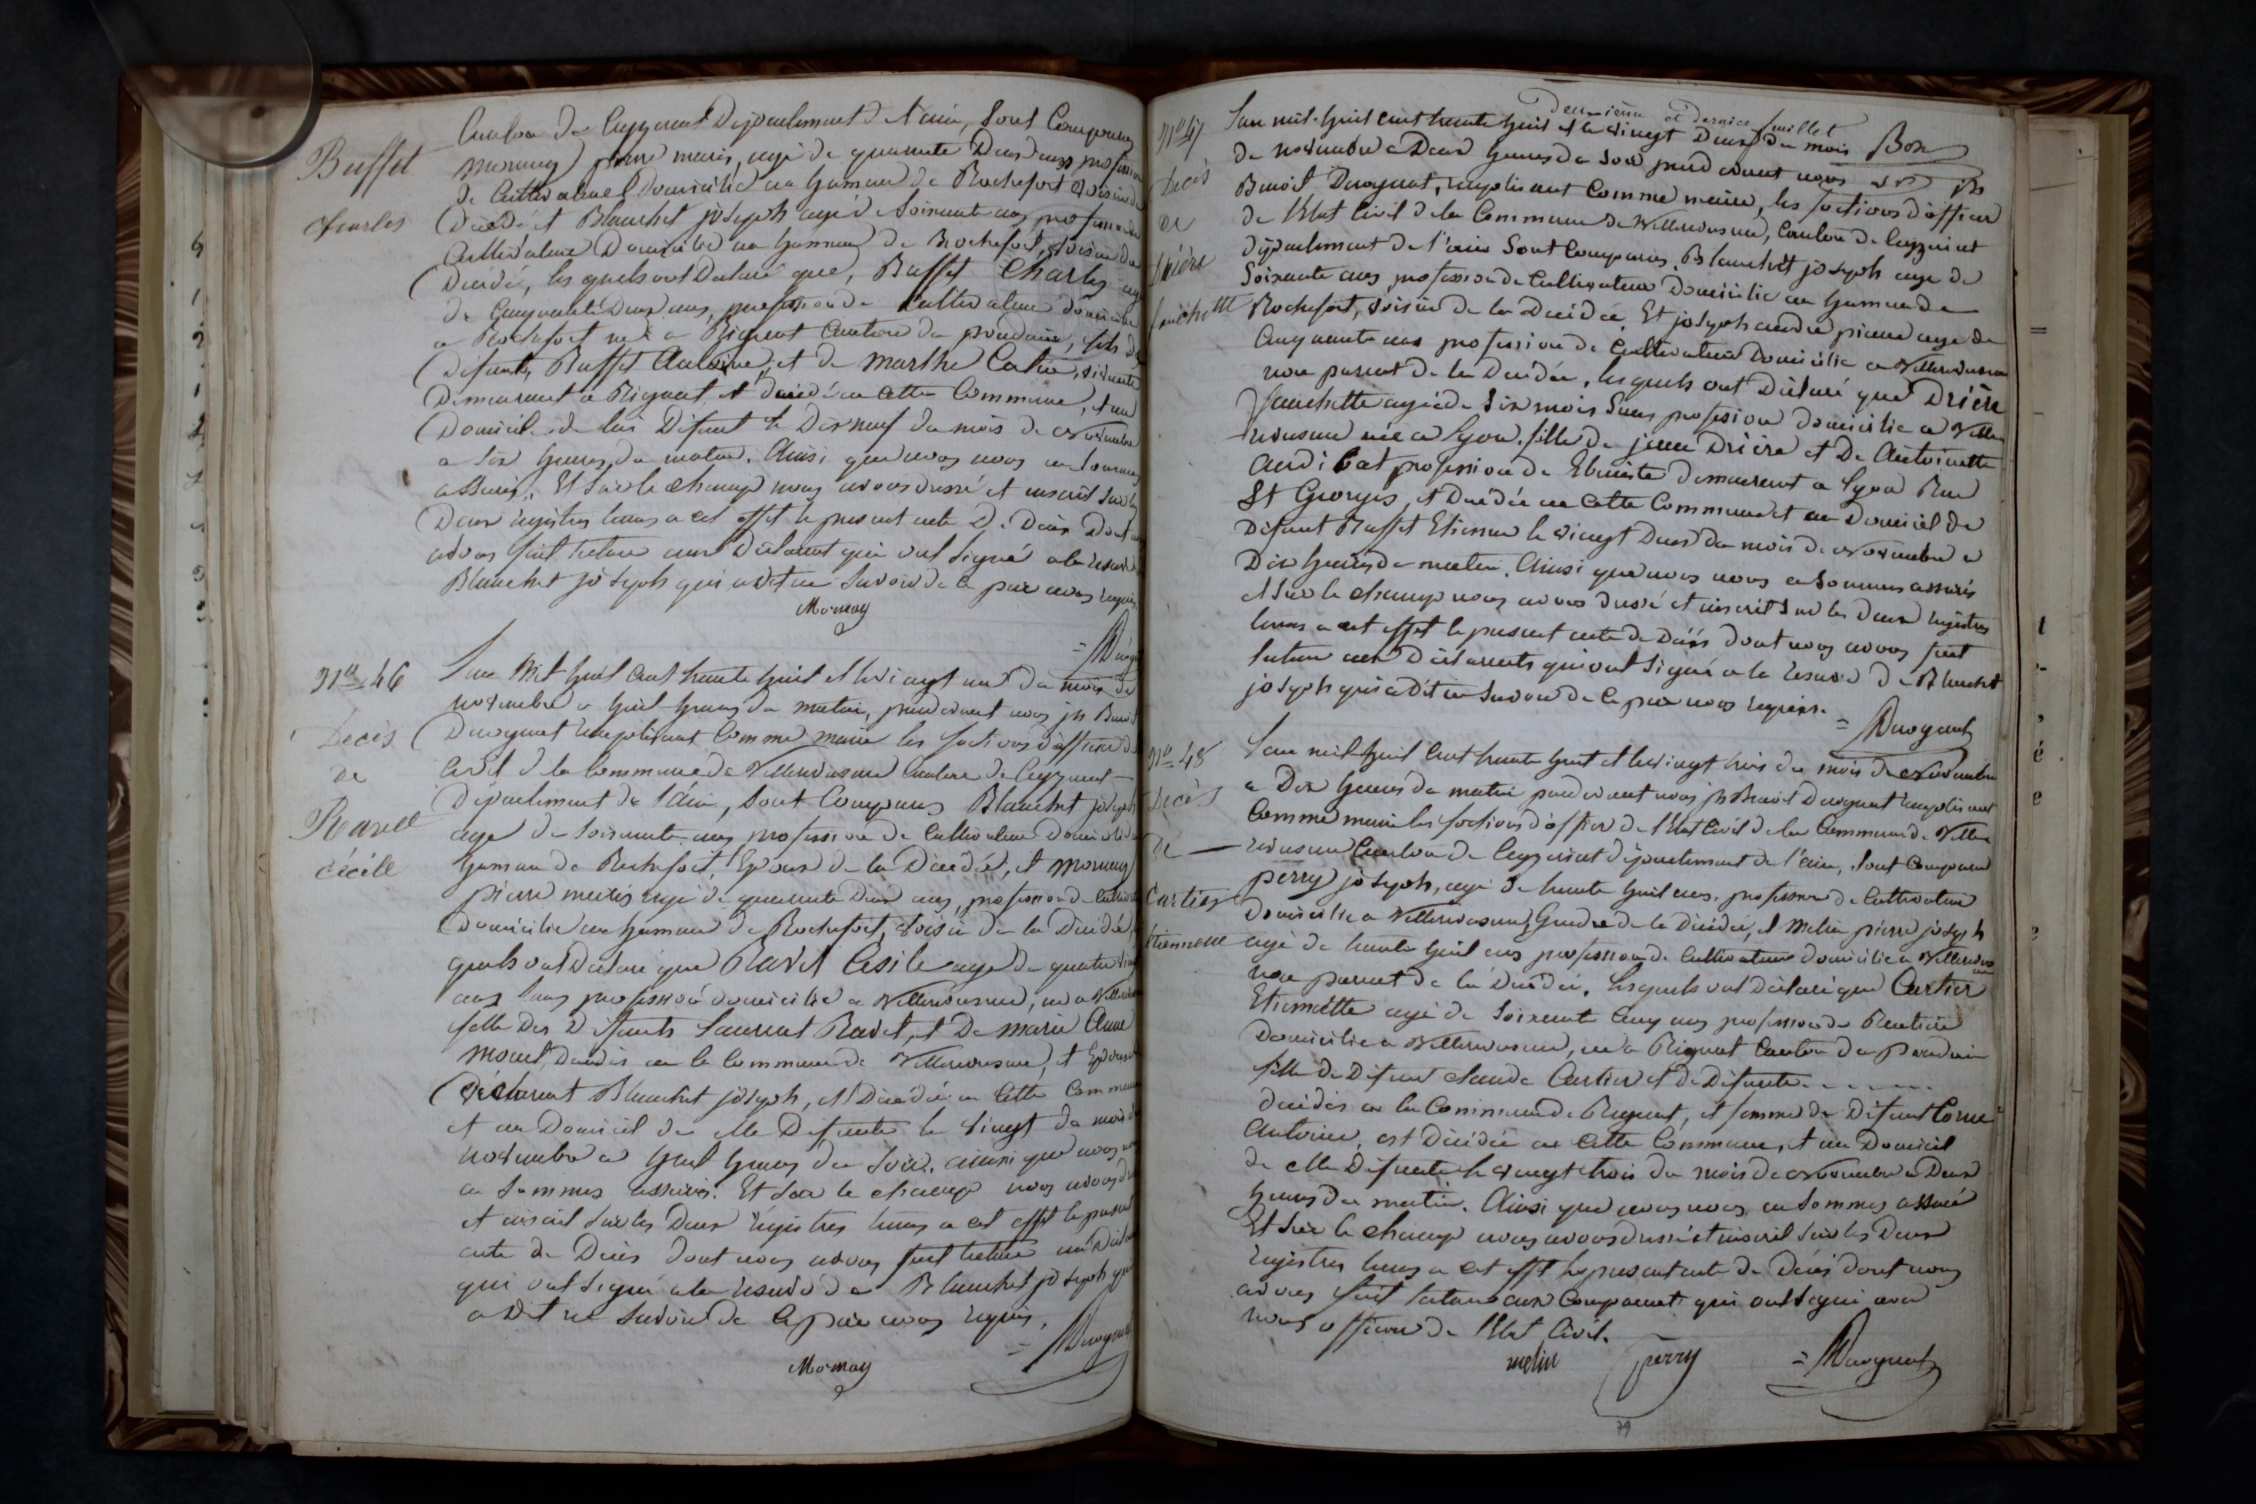 Buffet
Charles
Canton de Ceyzeriat Département de l'ain, sont Comparus
mornay pierre marie, agé de quarante Deux ans profession
de Cultivateur Domicilié au hameau de Rochefort voisin du
Décédé et Blanchet joseph agé de soixante ans profession de
Cultivateur Domicilié au hameau de Rochefort, voisin du
Décédé, les quels ont Déclaré que, Buffet Charles agé
de Cinquante Deux ans, profession de Cultivateur domicilié
a Rochefort né a Rignat Canton de pondain, fils de
Défunt, Buffet Antoine, et de marthe Catin, vivante
Demeurant a Rignat, et décédé en cette Commune, et au
Domicile de lui Défunt le Dix neuf du mois de Novembre
a six heures du matin. Ainsi que nous nous en sommes
assurés. Et sur le champ nous avons dressé et inscrit sur les
Deux registres tenus a cet effet le present acte De Décès Dont nous
avons fait lecture aux Déclarant qui ont signé a la reserve
Blanchet joseph qui a dit ne savoir de ce par nous requis.
Mornay
N° 46
Décès
de
Ravet
Cécile
L'an Mil huit Cent trente huit et le vingt un du mois de
novembre a huit heures du matin, pardevant nous jh Benoit
Duvognat remplissant Comme maire les foctions d'officier de
Civil de la Commune de Villereversure Canton de Ceyzeriat
Département de l'ain, sont Comparus Blanchet joseph
agé de soixante ans profession de Cultivateur Domicilié
hameau de Rochefort, Epoux de la Décédé, et mornay
pierre marie agé de quarante Deux ans, profession de Cultivateur
Domicilié au hameau de Rochefort, voisin de la Décédé
quels ont Déclaré que Ravet Cesile agé de quatre vingt
ans sans profession domicilié a Villereversure, né a Villereversure
fille Des Défunts Laurent Ravet, et De marie Anne
Décédés en la Commune de Villereversure, et Epouse de
Déclarant Blanchet joseph, et Décédée en Cette Commune
et au Domicil de elle Defunte le vingt du mois de
novembre a huit heures du soir. ainsi que nous nous
en sommes assurés. Et sur le champ nous avons
et inscrit sur les Deux régistres tenus a cet effet le present
acte de Décès dont nous avons fait lecture au Déclarant
qui ont signé a la reserve de Blanchet joseph qui
a dit ne savoir de ce par nous requis.
Mornay
Duvognat
Deuxième et Dernier feuillet
Bon
N° 47
Décès
de
Drière
fanchette
L'an mil huit cent trente huit et le vingt Deux du mois
de novembre a Deux heures du soir pardevant nous jh
Benoit Duvognat, remplissant Comme maire, les foctions d'officier
de l'Etat Civil de la Commune de Villereversure, Canton de Ceyzeriat
département de l'ain sont Comparus. Blanchet joseph agé de
soixante ans profession de Cultivateur Domicilié au hameau de
Rochefort, voisin de la Décédée. Et joseph andré pierre agé de
Cinquante ans profession de Cultivateur Domicilié a Villereversure
non parent de la Décédée. les quels ont Déclaré que Drière
fanchette agée de six mois sans profession domicilié a Ville
reversure née a Lyon. fille de jean Drière et De Antoinette
profession de Ebeniste demeurant a Lyon Rue
St Georges et Décédée en Cette Commune et au Domicil de
Défunt Buffet Etienne le vingt Deux du mois de novembre a
Dix heures du matin. Ainsi que nous nous en sommes assurés
et sur le champ nous avons dressé et inscrit sur les Deux régistres
tenus a cet effet le present acte de Décès dont nous avons fait
lecture aux Déclarants qui ont signé a la reserve De Blanchet
joseph qui a Dit ne savoir de ce par nous requis.
Duvognat
N° 48
Décès
de
Cartier
Etiennette
L'an mil huit Cent trente huit et le vingt trois du mois de novembre
a Dix heures du matin pardevant nous jh Benoit Duvognat remplissant
Comme maire les foctions d'officier de l'Etat Civil de la Commune de Ville
reversure Canton de Ceyzeriat département de l'ain, sont Comparus
perry joseph, agé de trente huit ans, profession de Cultivateur
domicilié a Villereversure, Gendre de la Décédée, et melin pierre joseph
agé de trente huit ans profession de Cultivateur domicilié a Villereversure
non parent de la Décédée. Lesquels ont déclaré que Cartier
Etiennette agé de soixante Cinq ans profession de Rentière
Domicilié a Villereversure, né a Rignat Canton de Pondain
fille de Défunt Claude Cartier et de Défunte . . . . . . .
décédés en la Commune de Rignat, et femme de Défunt
Antoine, est Décédée en Cette Commune, et au Domicil
de elle Défunte le vingt trois du mois de novembre a Deux
heures du matin. Ainsi que nous nous en sommes assuré
Et sur le champ nous avons dressé et inscrit sur les Deux
registres tenus a cet effet le present acte de Décès dont nous
avons fait lecture aux Comparants qui ont signé avec
nous officier de l'Etat Civil.
melin
perry
Duvognat